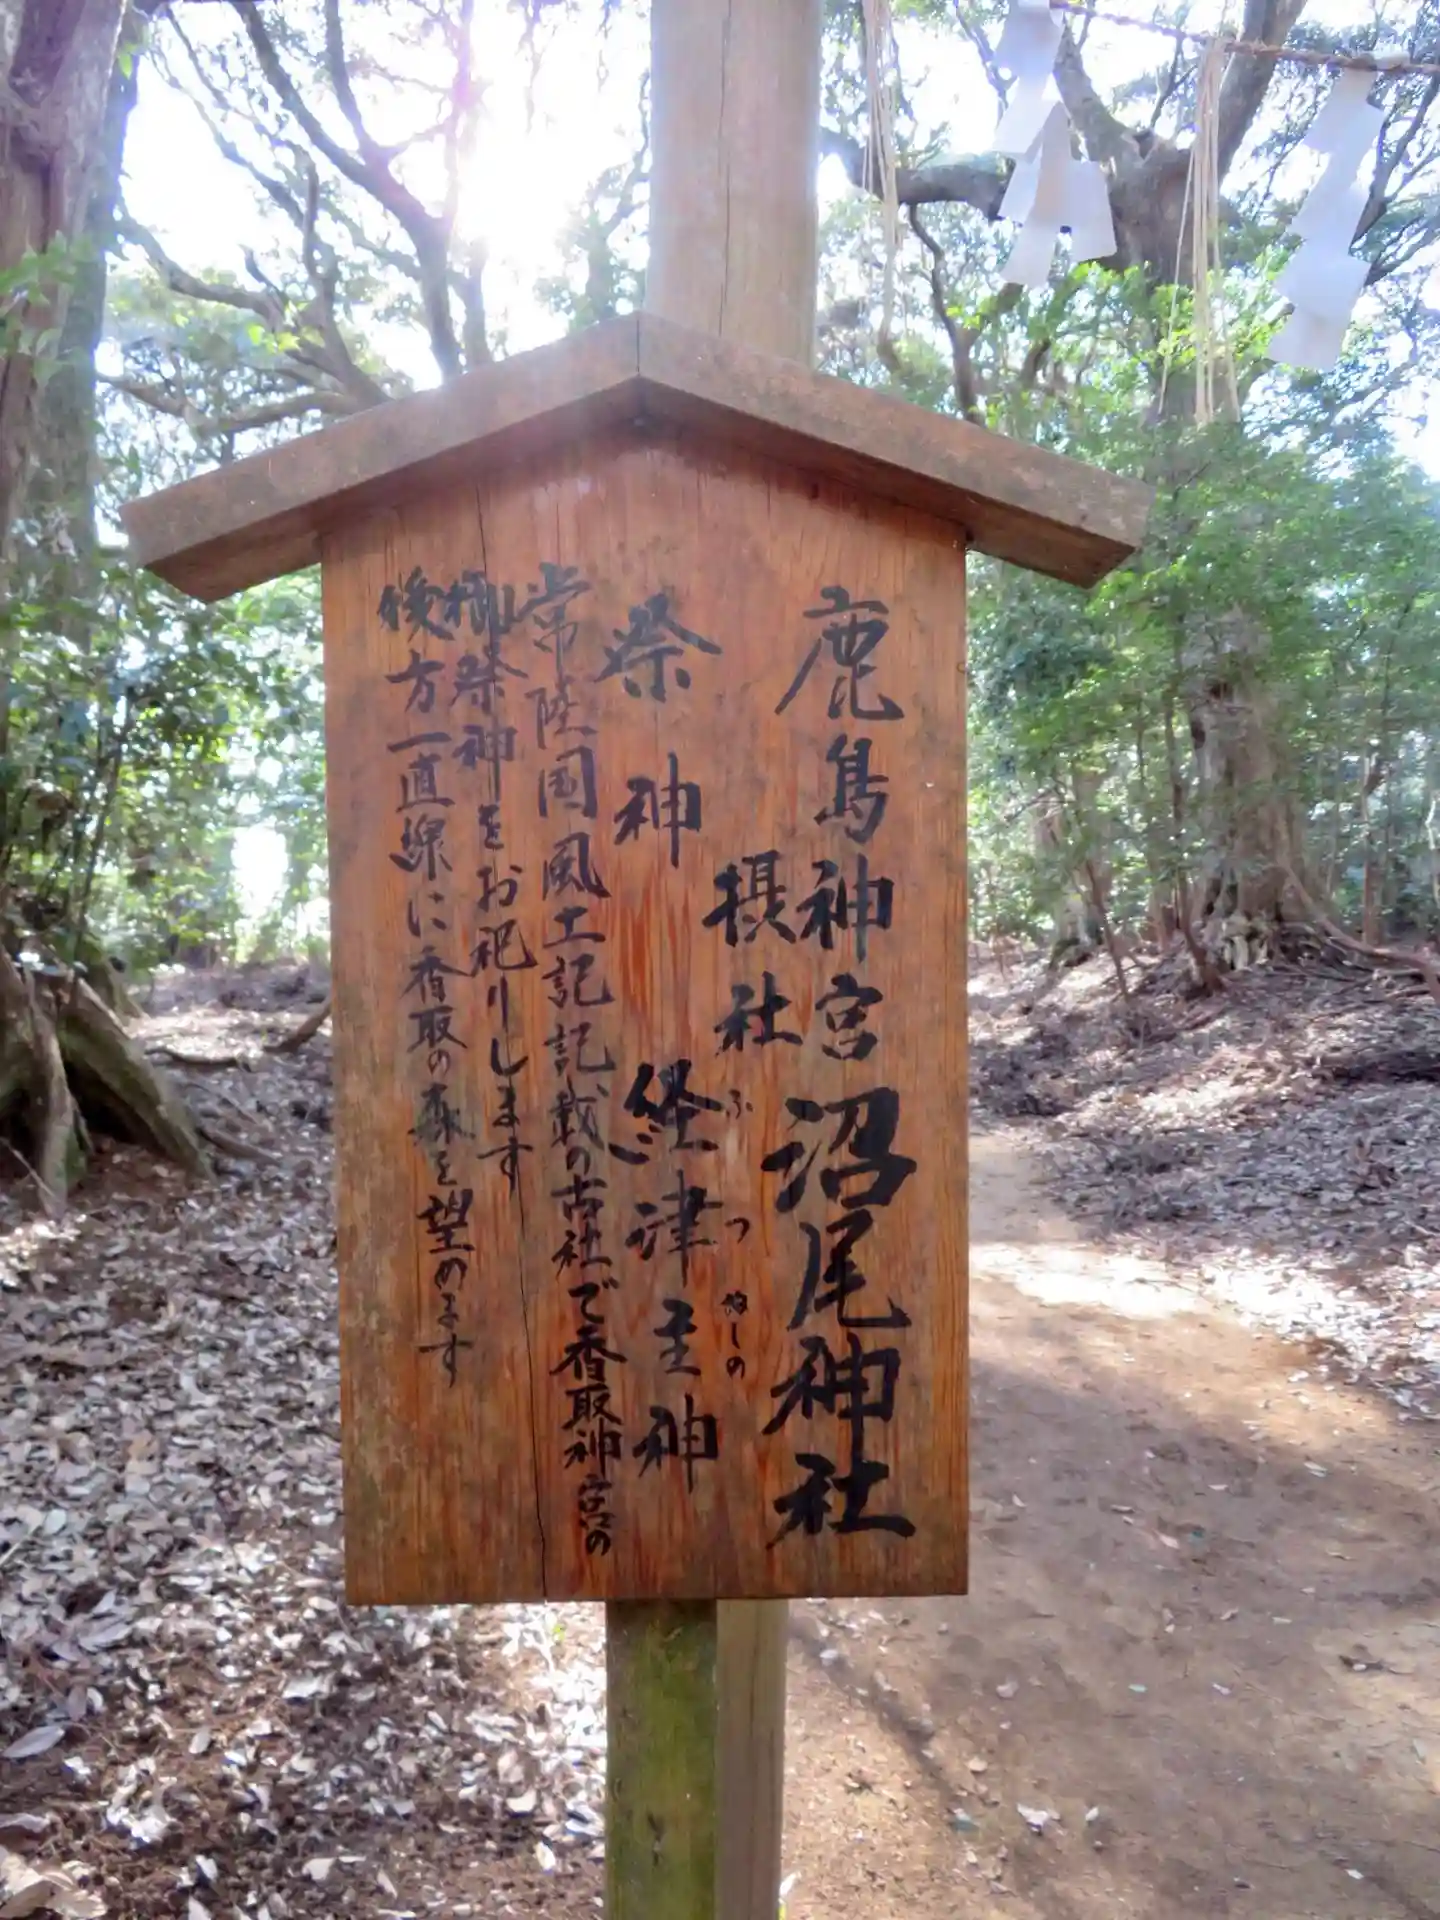 鹿島神宮
摂社
沼尾神社
祭神
経津主神
ふつぬしの
常陸国風土記記載の古社で香取神宮の
御祭神をお祀りします
後方一直線に香取の森を望めます